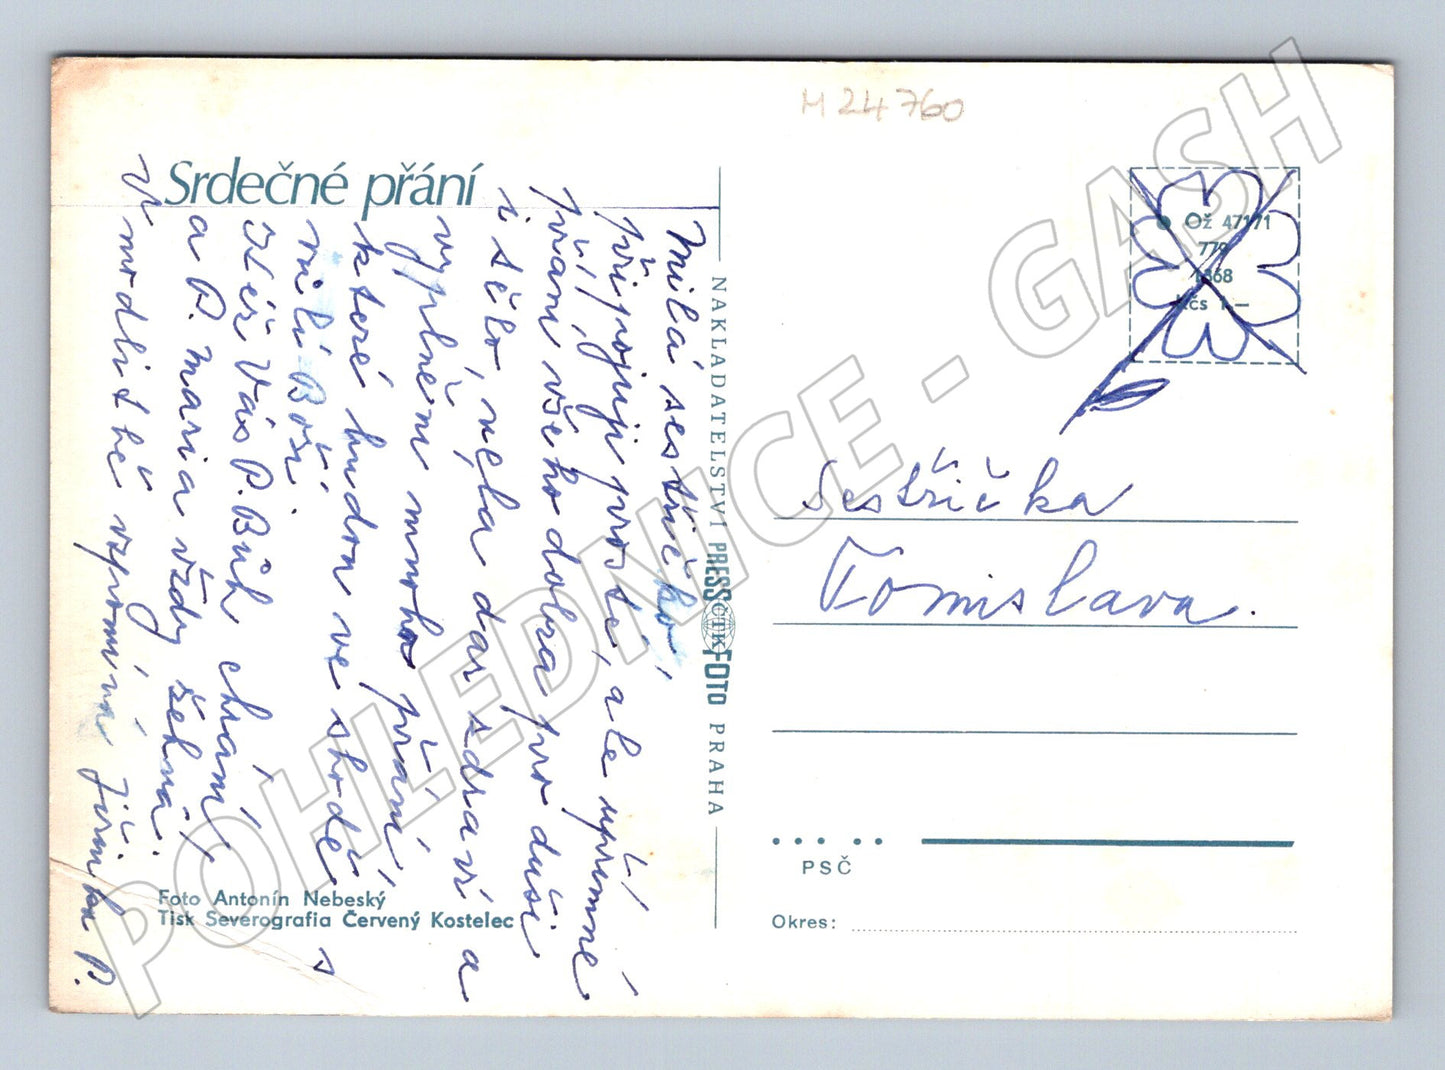 M 24760
Srdečné přání
Milá sestřičko,
připojuji prosté, ale upřímné
přání všeho dobra pro duši
i tělo, nechť dar zdraví a
vyplnění mnoha přání,
které budou ve shodě s
vůlí Boží.
Kéž Vás P. Bůh chrání,
a P. Maria vždy žehná.
V modlitbě vzpomíná Jiřinka P.
Foto Antonín Nebeský
Tisk Severografia Červený Kostelec
NAKLADATELSTVÍ PRESSFOTO PRAHA
ČTK
Ož 47171
779
1368
Kčs 1,—
Sestřička
Tomislava.
PSČ
Okres:
POHLEDNICE - GASH